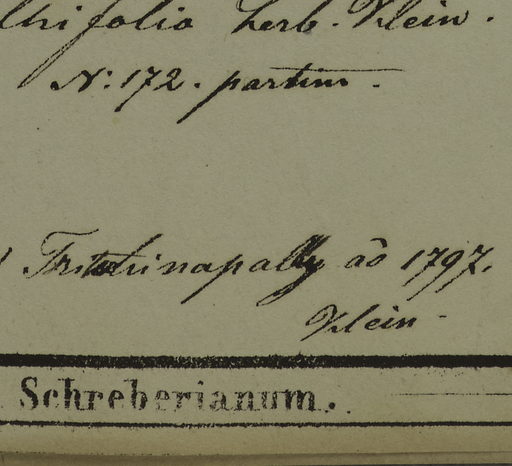 lhifolia herb. Klein.
N: 172. partim.
Tritchinapally aō 1797.
Klein
Schreberianum.